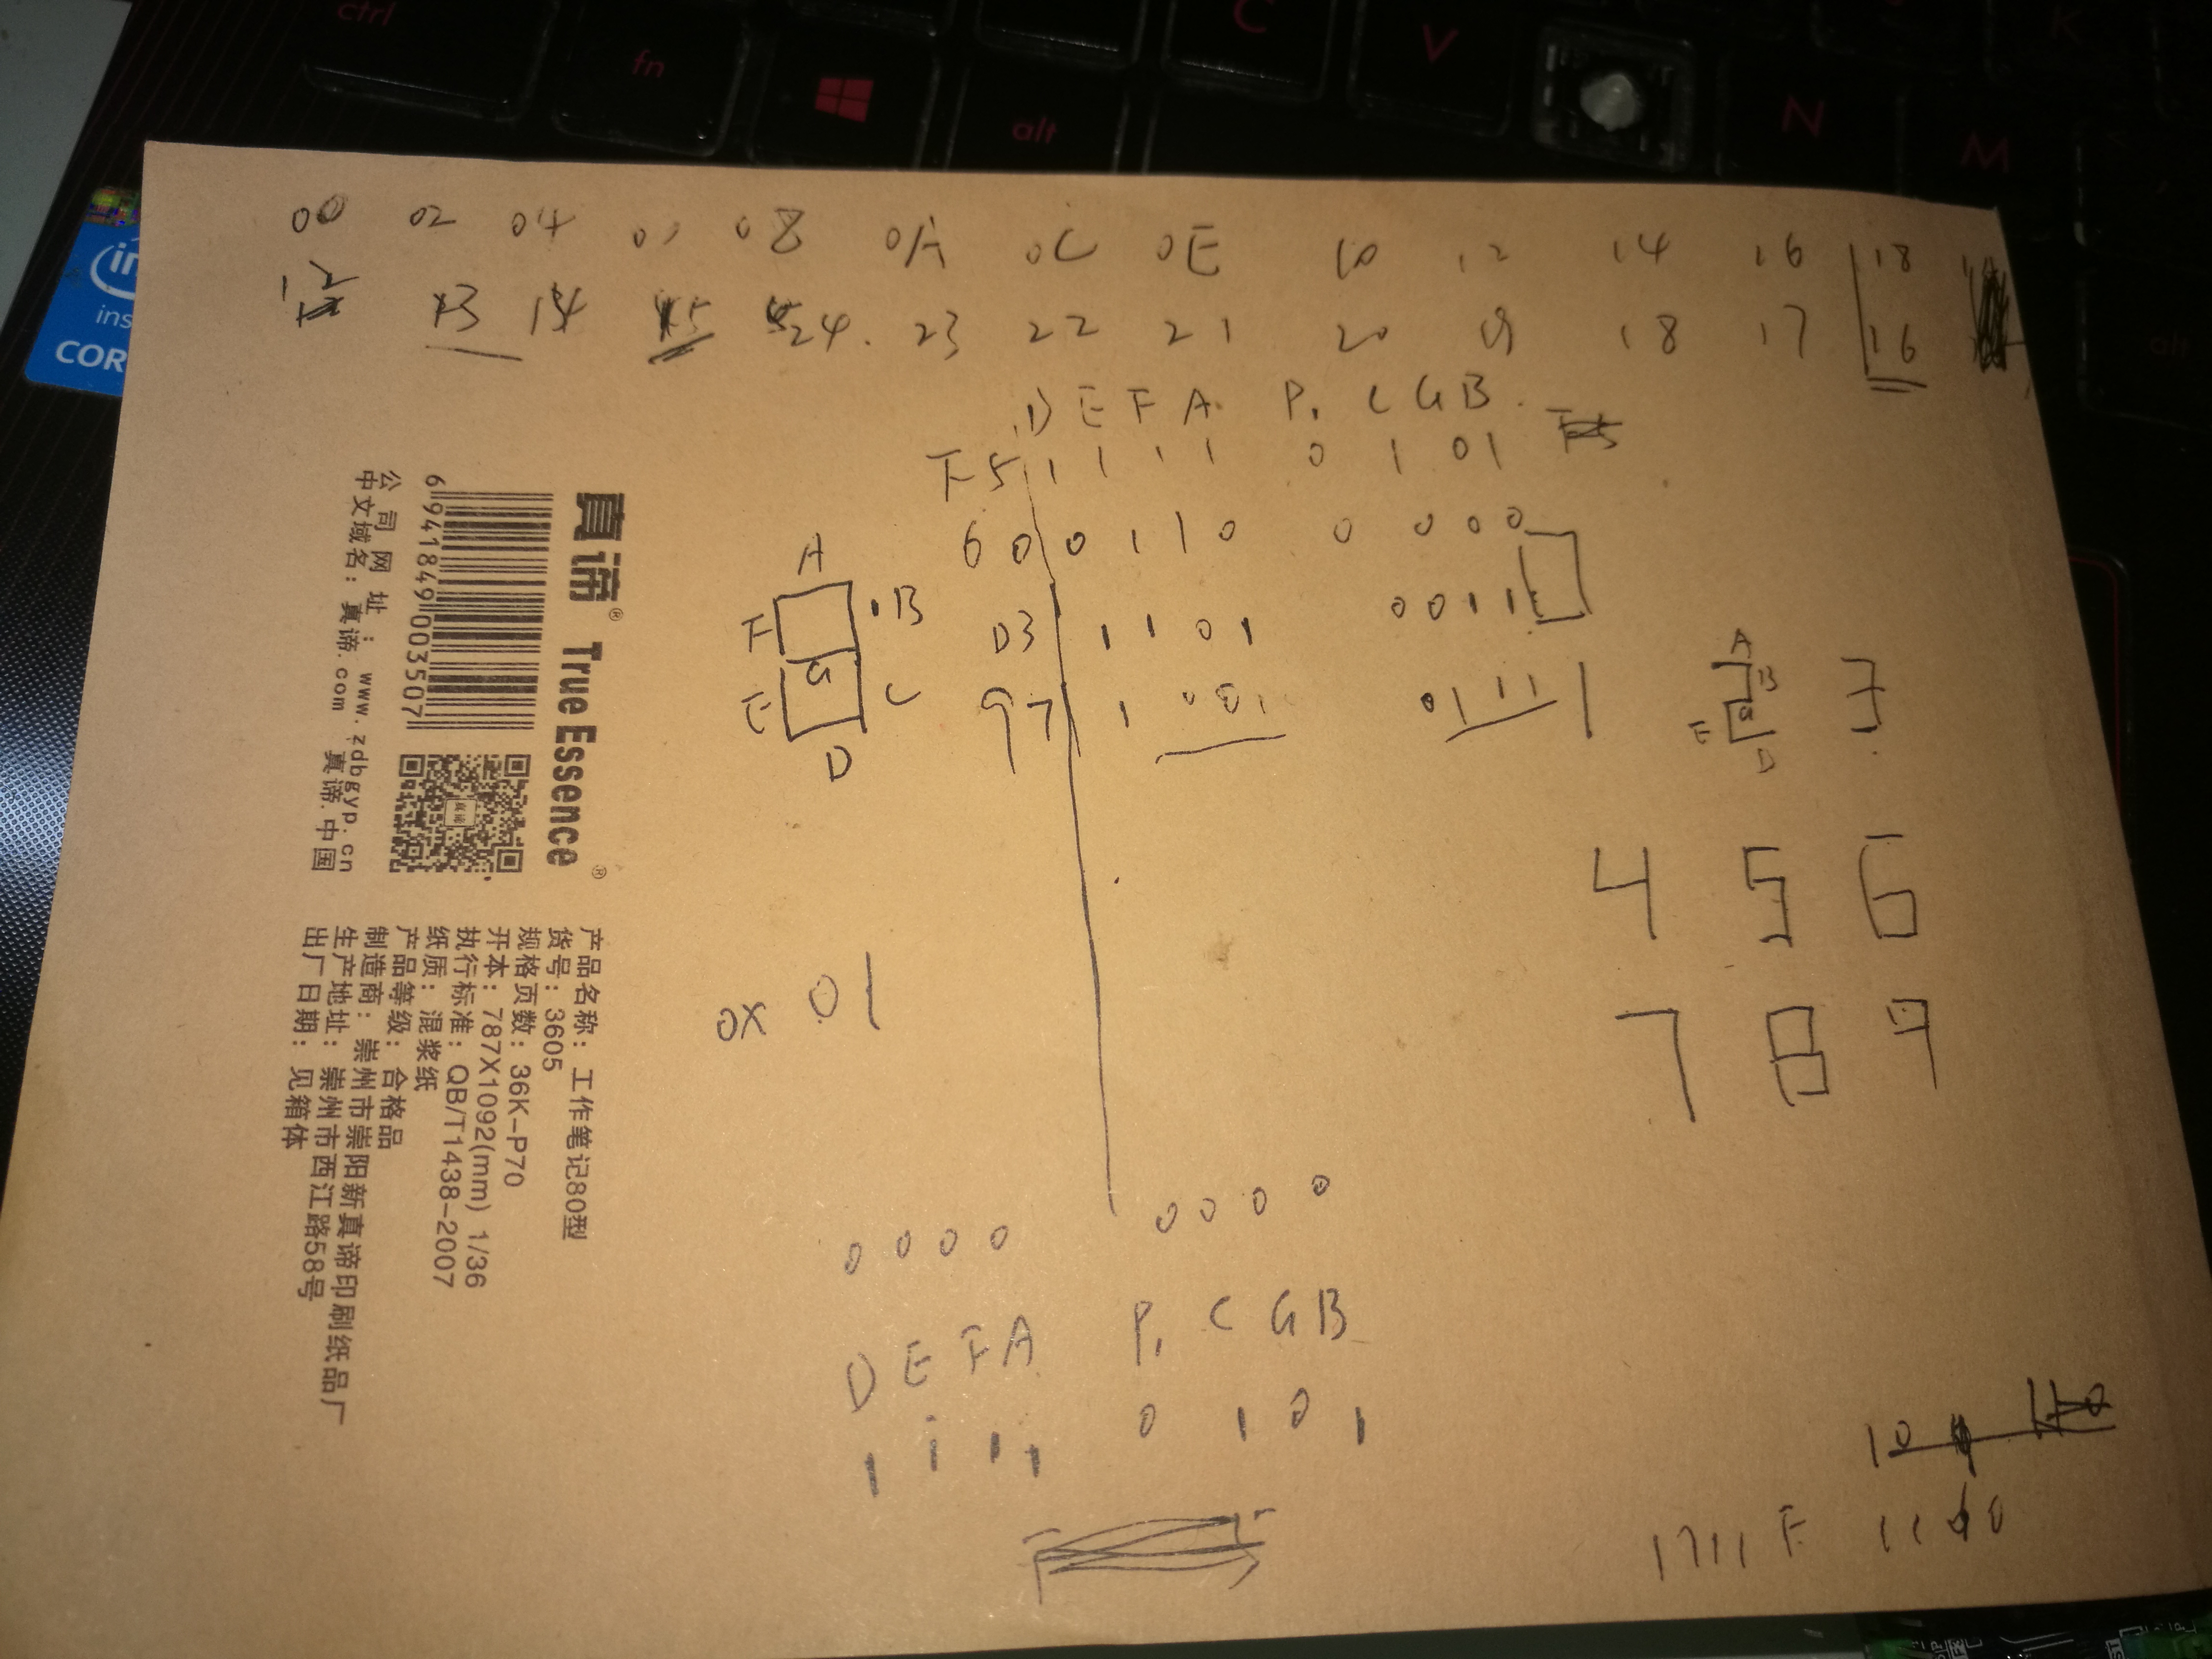 ctrl
fn
alt
C
V
N
M
K
alt
00 02 04 08 0A 0C 0E 10 12 14 16 18
12 13 14 15 24. 23 22 21 20 19 18 17 16
D E F A P. C G B
F5 1 1 1 1 0 1 0 1
60 0 1 1 0 0 0 0 0
D3 1 1 0 1 0 0 1 1
97 1 0 0 1 0 1 1 1
A
F B
G
E C
D
A
B
G
E
D
3
4 5 6
7 8 9
0x 01
0 0 0 0 0 0 0 0
D E F A P. C G B
1 1 1 1 0 1 0 1
10
1711 F
真谛® True Essence®
6 941849 003507
公司网址：www.zdbgyp.cn
中文域名：真谛.com 真谛.中国
产品名称：工作笔记80型
货号：3605
规格页数：36K-P70
开本：787X1092(mm) 1/36
执行标准：QB/T1438-2007
纸质：混浆纸
产品等级：合格品
制造商：崇州市崇阳新真谛印刷纸品厂
生产地址：崇州市西江路58号
出厂日期：见箱体